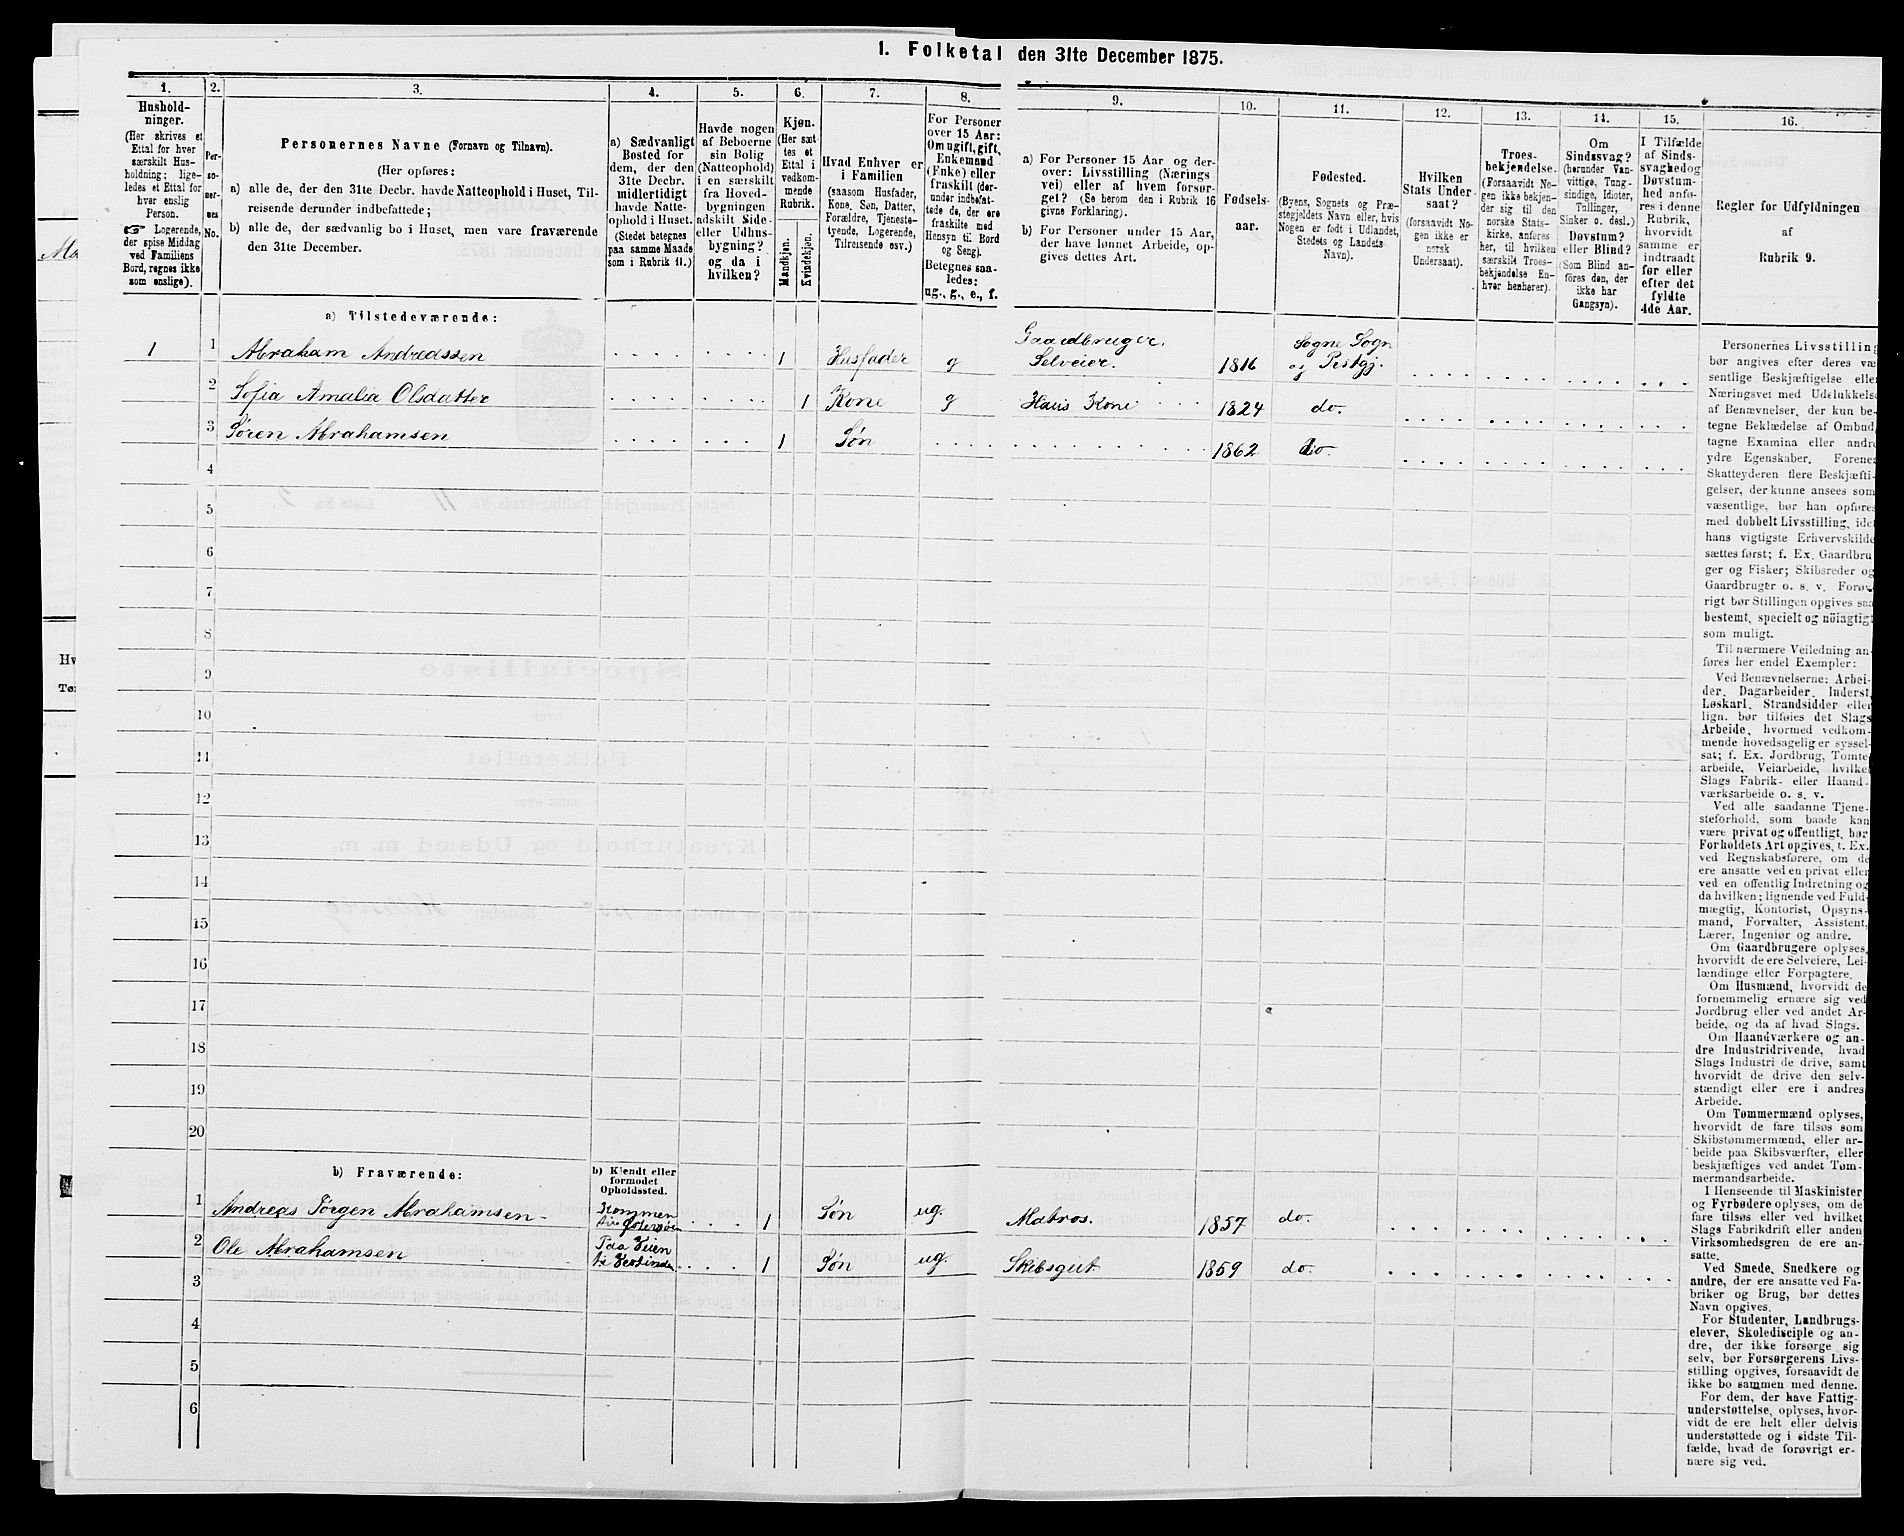 1. Folketal den 31te December 1875.
1.
2.
3.
4.
5.
6.
7.
8.
9.
10.
11.
12.
13.
14.
15.
16.
Hushold-
ninger.
(Her skrives et
Ettal for hver
særskilt Hus-
holdning; lige-
ledes et Ettal for
hver enslig
Person.
☞ Logerende,
der spise Middag
ved Familiens
Bord, regnes ikke
som enslige).
Per-
so-
ner-
nes
No.
Personernes Navne (Fornavn og Tilnavn).
(Her opføres:
a) alle de, der den 31te Decbr. havde Natteophold i Huset, Til-
reisende derunder indbefattede;
b) alle de, der sædvanlig bo i Huset, men vare fraværende
den 31te December.
a) Sædvanligt
Bosted for
dem, der den
31te Decbr.
midlertidigt
havde Natte-
ophold i Huset.
(Stedet betegnes
paa samme Maade
som i Rubrik 11.)
Havde nogen
af Beboerne
sin Bolig
(Natteophold)
i en særskilt
fra Hoved-
bygningen
adskilt Side-
eller Udhus-
bygning?
og da i
hvilken?
Kjøn.
(Her sæt-
tes et
Ettal i
vedkom-
mende
Rubrik.
Mandkjøn.
Kvindekjøn.
Hvad Enhver er
i Familien
(saasom Husfader,
Kone, Søn, Datter,
Forældre, Tjeneste-
tyende, Logerende,
Tilreisende osv.)
For Personer
over 15 Aar:
Om ugift, gift,
Enkemand
(Enke) eller
fraskilt (der-
under indbefat-
tede de, der ere
fraskilte med
Hensyn til Bord
og Seng).
Betegnes saa-
ledes:
ug., g., e., f.
a) For Personer 15 Aar og der-
over: Livsstilling (Nærings
vei) eller af hvem forsør-
get? (Se herom den i Rubrik 16
givne Forklaring).
b) For Personer under 15 Aar,
der have lønnet Arbeide, op-
gives dettes Art.
Fødsels-
aar.
Fødested.
(Byens, Sognets og Præ-
stegjeldets Navn eller, hvis
Nogen er født i Udlandet,
Stedets og Landets
Navn).
Hvilken
Stats Under-
saat?
(forsaavidt No-
gen ikke er
norsk
Undersaat).
Troes-
bekjendelse.
(Forsaavidt No-
gen ikke bekjen-
der sig til den
norske Stats-
kirke, anføres
her, til hvilken
særskilt Troes-
bekjendelse En-
hver henhører).
Om
Sindssvag?
(herunder Van-
vittige, Tung-
sindige, Idioter,
Tullinger,
Sinker o. desl.)
Døvstum?
eller Blind?
(Som Blind an-
føres den, der
ikke har
Gangsyn).
I Tilfælde
af Sinds-
svaghed og
Døvstum-
hed anfø-
res i denne
Rubrik,
hvorvidt
samme er
indtraadt
før eller
efter det
fyldte
4de Aar.
Regler for Udfyldningen
af
Rubrik 9.
a) Tilstedeværende:
1 1 Abraham Andreassen 1 Husfader g Gaardbruger. Selveier. 1816 Sogne Sogn og Præstgj.
2 Sofia Amalia Olsdatter 1 Kone g Hans Kone 1824 do.
3 Søren Abrahamsen 1 Søn 1862 do.
4
5
6
7
8
9
10
11
12
13
14
15
16
17
18
19
20
b) Fraværende:
b) Kjendt eller
formodet
Opholdssted.
1 Andreas Jørgen Abrahamsen Kommen fra Østersøen 1 Søn ug. Matros. 1857 do.
2 Ole Abrahamsen Paa Veien til Vestindien 1 Søn ug. Skibsgut. 1859 do.
3
4
5
6
Personernes Livsstilling
bør angives efter deres væ
sentlige Beskjæftigelse eller
Næringsvei med Udelukkelse
af Benævnelser, der kun be-
tegne Beklædelse af Ombud,
tagne Examina eller andre
ydre Egenskaber. Forener
Skatteyderen flere Beskjæfti-
gelser, der kunne ansees som
væsentlige, bør han opføres
med dobbelt Livsstilling, idet
hans vigtigste Erhvervskilde
sættes først; f. Ex. Gaardbru
ger og Fisker; Skibsreder og
Gaardbruger o. s. v. Forøv
rigt bør Stillingen opgives saa
bestemt, specielt og nöiagtigt
som muligt.
Til nærmere Veiledning an-
føres her endel Exempler:
Ved Benævnelserne: Arbei-
der, Dagarbeider, Inderst,
Løskarl, Strandsidder eller
lign. bør tilføies det Slags
Arbeide, hvormed vedkom-
mende hovedsagelig er syssel-
sat; f. Ex. Jordbrug, Tomte
arbeide, Veiarbeide, hvilket
Slags Fabrik- eller Haand-
værksarbeide o. s. v.
Ved alle saadanne Tjene-
steforhold, som baade kan
være privat og offentligt, bør
Forholdets Art opgives, f. Ex.
ved Regnskabsførere, om de
ere ansatte ved en privat eller
ved en offentlig Indretning og
da hvilken; lignende ved Fuld-
mægtig, Kontorist, Opsyns-
mand, Forvalter, Assistent,
Lærer, Ingeniør og andre.
Om Gaardbrugere oplyses,
hvorvidt de ere Selveiere, Lei-
lændinge eller Forpagtere.
Om Husmænd, hvorvidt de
fornemmelig ernære sig ved
Jordbrug eller ved andet Ar-
beide, og da af hvad Slags.
Om Haandværkere og an-
dre Industridrivende, hvad
Slags Industri de drive, samt
hvorvidt de drive den selv-
stændigt eller ere i andres
Arbeide.
Om Tømmermænd oplyses,
hvorvidt de fare tilsøs som
Skibstømmermænd, eller ar-
beide paa Skibsværfter, eller
beskjæftiges ved andet Tøm-
mermandsarbeide.
I Henseende til Maskinister
og Fyrbødere oplyses, om de
fare tilsøs eller ved hvilket
Slags Fabrikdrift eller anden
Virksomhedsgren de ere an-
satte.
Ved Smede, Snedkere og
andre, der ere ansatte ved Fa-
briker og Brug, bør dettes
Navn opgives.
For Studenter, Landbrugs-
elever, Skoledisciple og an-
dre, der ikke forsørge sig
selv, bør Forsørgerens Livs-
stilling opgives, forsaavidt de
ikke bo sammen med denne.
For dem, der have Fattig-
understøttelse, oplyses, hvor-
vidt de ere helt eller delvis
understøttede og i sidste Til-
fælde, hvad de forøvrigt er-
nære sig ved.